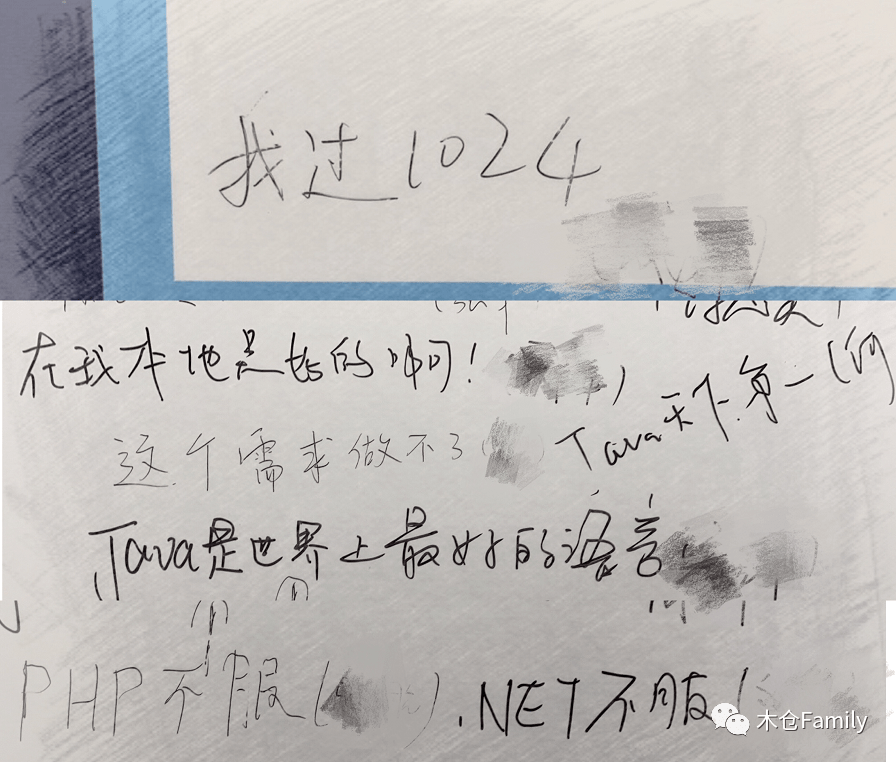 我过1024
在我本地是好的啊！
Java天下第一(何
这个需求做不了
Java是世界上最好的语言.
PHP不服(
.NET不服(
木仓Family